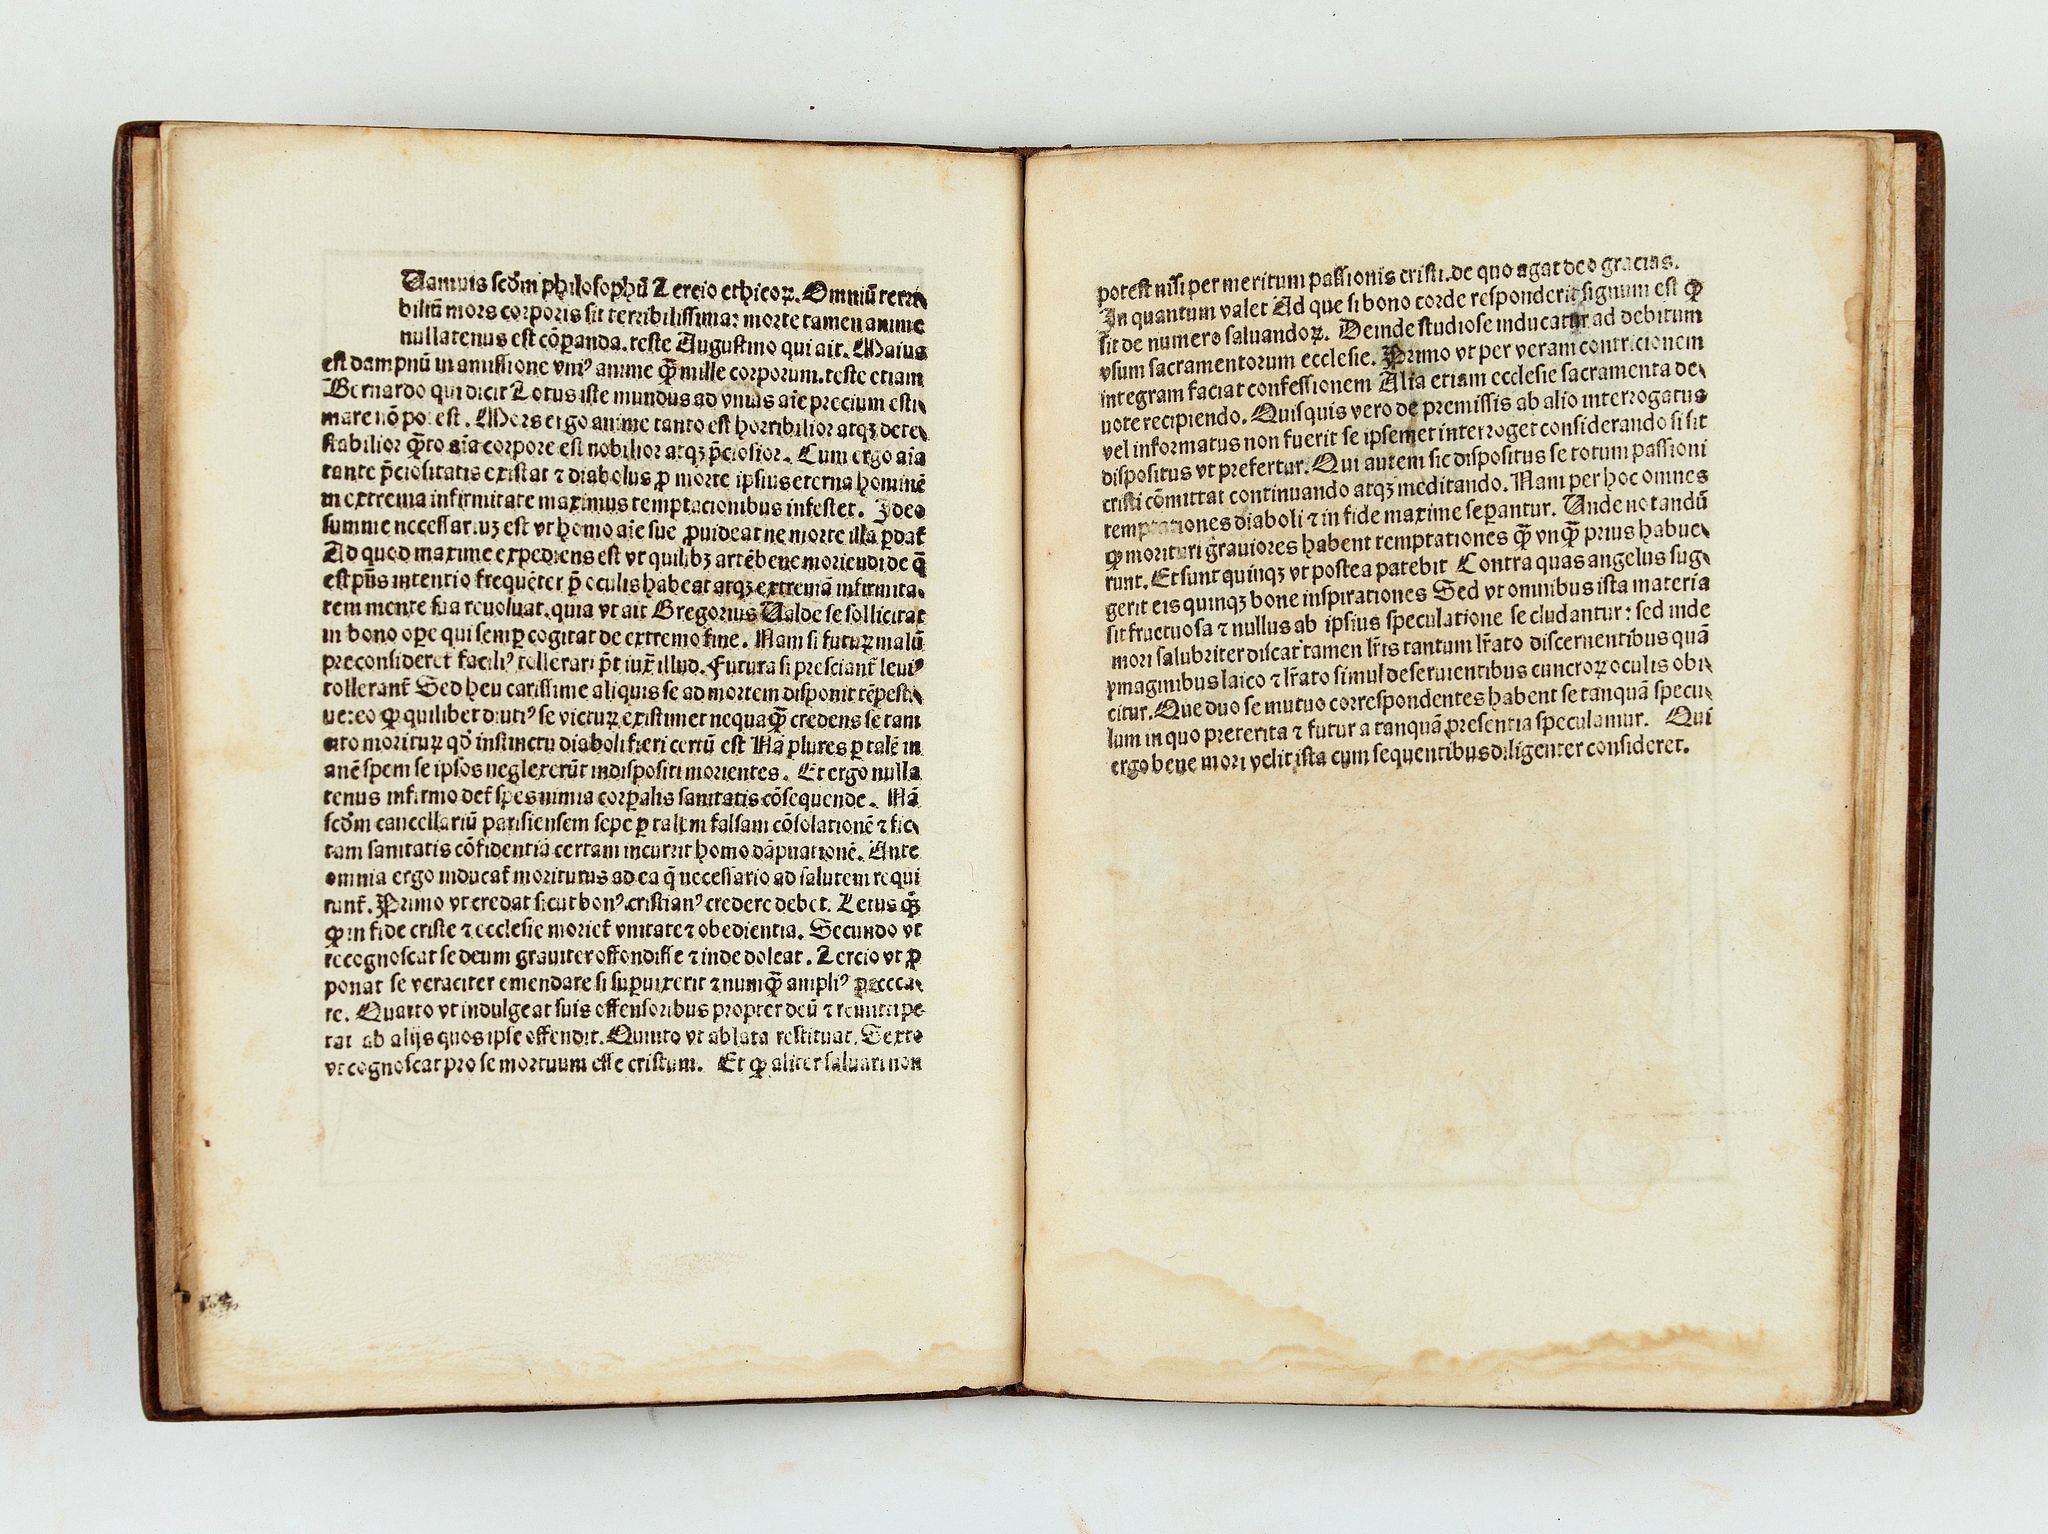 Uamuis scđm philosophū Tercio ethicoꝝ. Omniū terri
biliū mors corporis sit terribilissima: morte tamen anime
nullatenus est cōꝑanda. teste Augustino qui ait. Maius
est dampnū in amissione vniꝰ anime q̄ꝫ mille corporum. teste etiam
Bernardo qui dicit Totus iste mundus ad vnius aīe precium esti
mare nō po est. Mors ergo anime tanto est horribilior atqꝫ dete
stabilior q̄ꝫto aīa corpore est nobilior atqꝫ p̄ciosior. Cum ergo aīa
tante p̄ciositatis existat ⁊ diabolus ꝓ morte ipsius eterna hominē
in extrema infirmitate maximus temptacionibus infestet. Ideo
summe necessar. uꝫ est vt homo aīe sue ꝓuideat ne morte illa ꝑdat᷑
Ad quod maxime expediens est vt quilibꝫ artē bene moriendi de q̄
est pn̄s intentio frequēter p̄ oculis habeat atqꝫ extremā infirmita
tem mente sua reuoluat. quia vt ait Gregorius Ualde se sollicitat
in bono oꝑe qui semꝑ cogitat de extremo fine. Nam si futuꝝ malū
preconsideret᷑ faciliꝰ tollerari p̄t iux̄ illud. Futura si presciant᷑ leuiꝰ
tollerant᷑ Sed heu carissime aliquis se ad mortem disponit tēpesti
ue: eo ꝙ quilibet diutiꝰ se victuꝝ existimet nequaq̄ꝫ credens se tam
cito morituꝝ qđ instinctu diaboli fieri certū est Nā plures ꝑ talē in
anē spem se ipsos neglexerūt indispositi morientes. Et ergo nulla
tenus infirmo det᷑ spes nimia corꝑalis sanitatis cōsequende. Nā
scđm cancellariū parisiensem sepe ꝑ talem falsam cōsolationē ⁊ fic
tam sanitatis cōfidentiā certam incurrit homo dāpnationē. Ante
omnia ergo inducat᷑ moriturus ad ea q̄ necessario ad salutem requi
runt᷑. Primo vt credat sicut bonꝰ cristianꝰ credere debet. Letus q̄ꝫ
ꝙ in fide criste ⁊ ecclesie moriet᷑ vnitate ⁊ obedientia. Secundo vt
recognoscat se deum grauiter offendisse ⁊ inde doleat. Tercio vt ꝓ
ponat se veraciter emendare si suꝑuixerit ⁊ numq̄ꝫ ampliꝰ pecca
re. Quarto vt indulgeat suis offensoribus propter deū ⁊ remitti pe
tat ab alijs quos ipse offendit. Quinto vt ablata restituat. Sexto
vt cognoscat pro se mortuum esse cristum. Et ꝙ aliter saluari non
potest nisi per meritum passionis cristi. de quo agat deo gracias.
In quantum valet Ad que si bono corde responderit signum est ꝙ
sit de numero saluandoꝝ. Deinde studiose inducatur ad debitum
vsum sacramentorum ecclesie. Primo vt per veram contricionem
integram faciat confessionem Alia etiam ecclesie sacramenta de
uote recipiendo. Quisquis vero de premissis ab alio interrogatus
vel informatus non fuerit se ipsemet interroget considerando si sit
dispositus vt prefertur. Qui autem sic dispositus se totum passioni
cristi cōmittat continuando atqꝫ meditando. Nam per hoc omnes
temptationes diaboli ⁊ in fide maxime seꝑantur. Unde notandū
ꝙ morituri grauiores habent temptationes q̄ꝫ vnq̄ꝫ prius habue
runt. Et sunt quinqꝫ vt postea patebit Contra quas angelus sug
gerit eis quinqꝫ bone inspirationes Sed vt omnibus ista materia
sit fructuosa ⁊ nullus ab ipsius speculatione secludantur: sed inde
mori salubriter discat᷑ tamen lr̄is tantum lr̄ato discernentibus quā
ymaginibus laico ⁊ lr̄ato simul deseruientibus cunctoꝝ oculis obi
citur. Que duo se mutuo correspondentes habent se tanquā specu
lum in quo preterita ⁊ futura tanquā presentia speculamur. Qui
ergo bene mori velit ista cum sequentibus diligenter consideret.